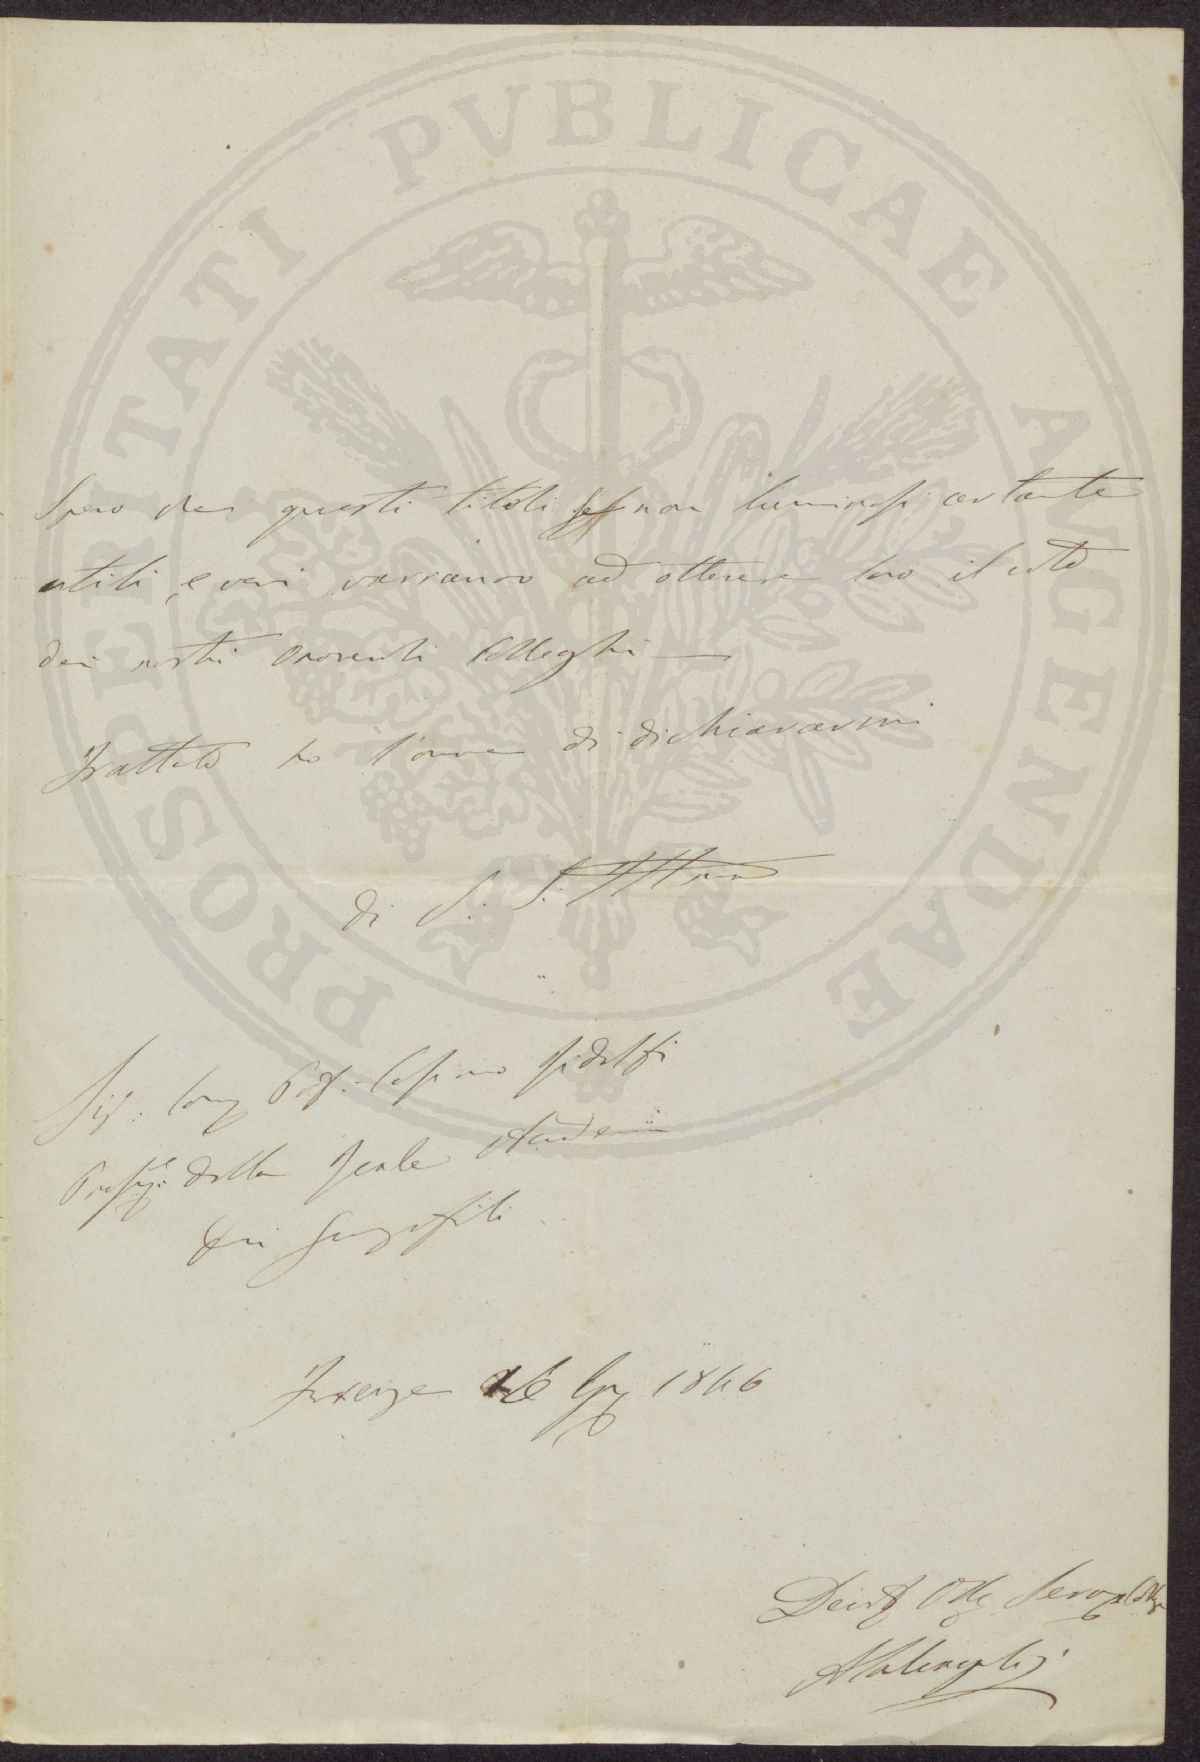 PROSPERITATI PUBLICAE AUGENDAE
Spero che questi titoli se non luminosi certamte
utili, e veri varranno ad ottenere loro il voto
dei nostri onorevoli Colleghi —
Frattato ho l'onore di dichiararmi
di S. S. Illma
Sig. Cosimo Ridolfi
della Reale Accademia
dei Georgofili
Firenze 1846
Devot Obb Servo